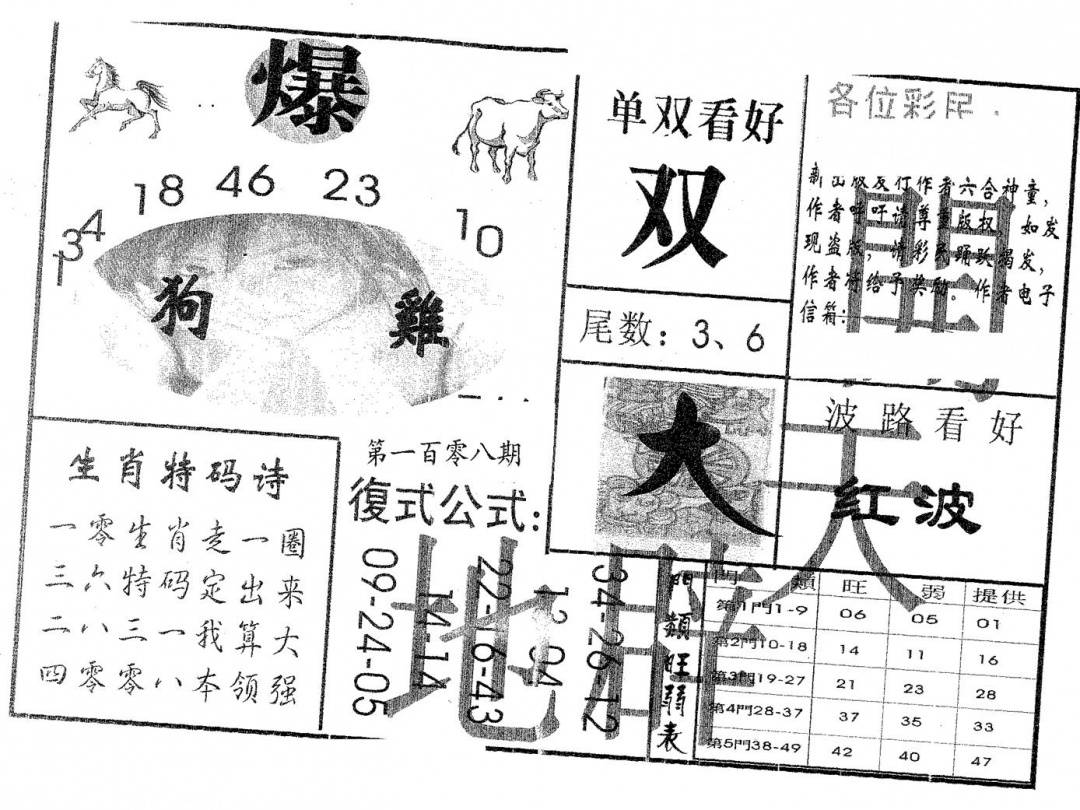 爆
18 46 23
34
1
10
狗 雞
单双看好
双
尾数：3、6
各位彩民
作者呼吁请尊重版权，如发
现盗版，请彩民踊跃揭发，
作者将给予奖励。作者电子
信箱：
大
波路看好
红波
生肖特码诗
一零生肖走一圈
三六特码定出来
二八三一我算大
四零零八本领强
第一百零八期
復式公式：
09-24-05
14-14
22-16-43
34-26-12
門類旺弱表
門類 旺 弱 提供
第1門1-9 06 05 01
第2門10-18 14 11 16
第3門19-27 21 23 28
第4門28-37 37 35 33
第5門38-49 42 40 47